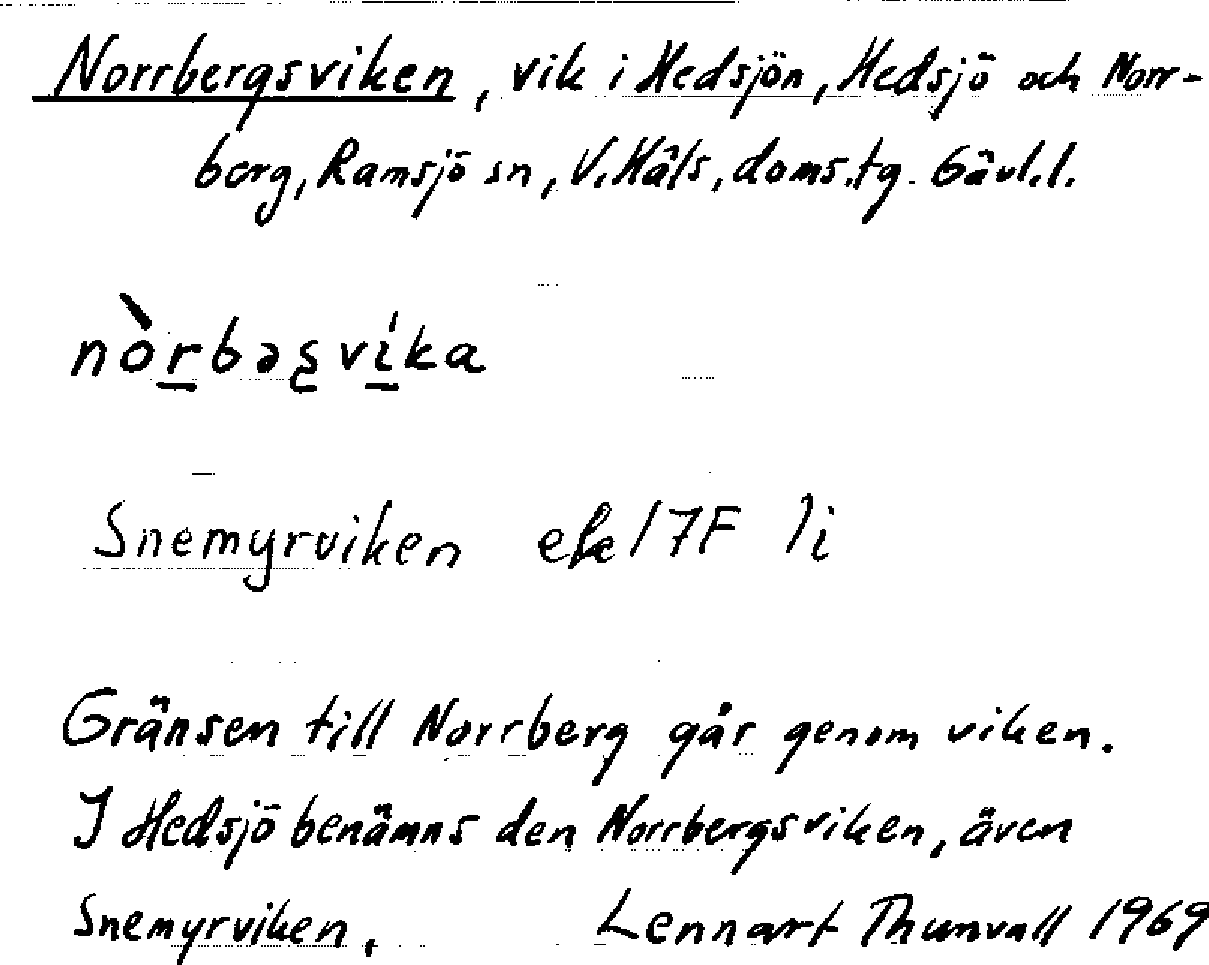 Norrbergsviken, vik i Hedsjön, Hedsjö och Norr-
berg, Ramsjö sn, V. Häls, doms.tg. Gävl.l.
nòrbəs̱víka
Snemyrviken ek 17F 1i
Gränsen till Norrberg går genom viken.
I Hedsjö benämns den Norrbergsviken, även
Snemyrviken. Lennart Thunvall 1969